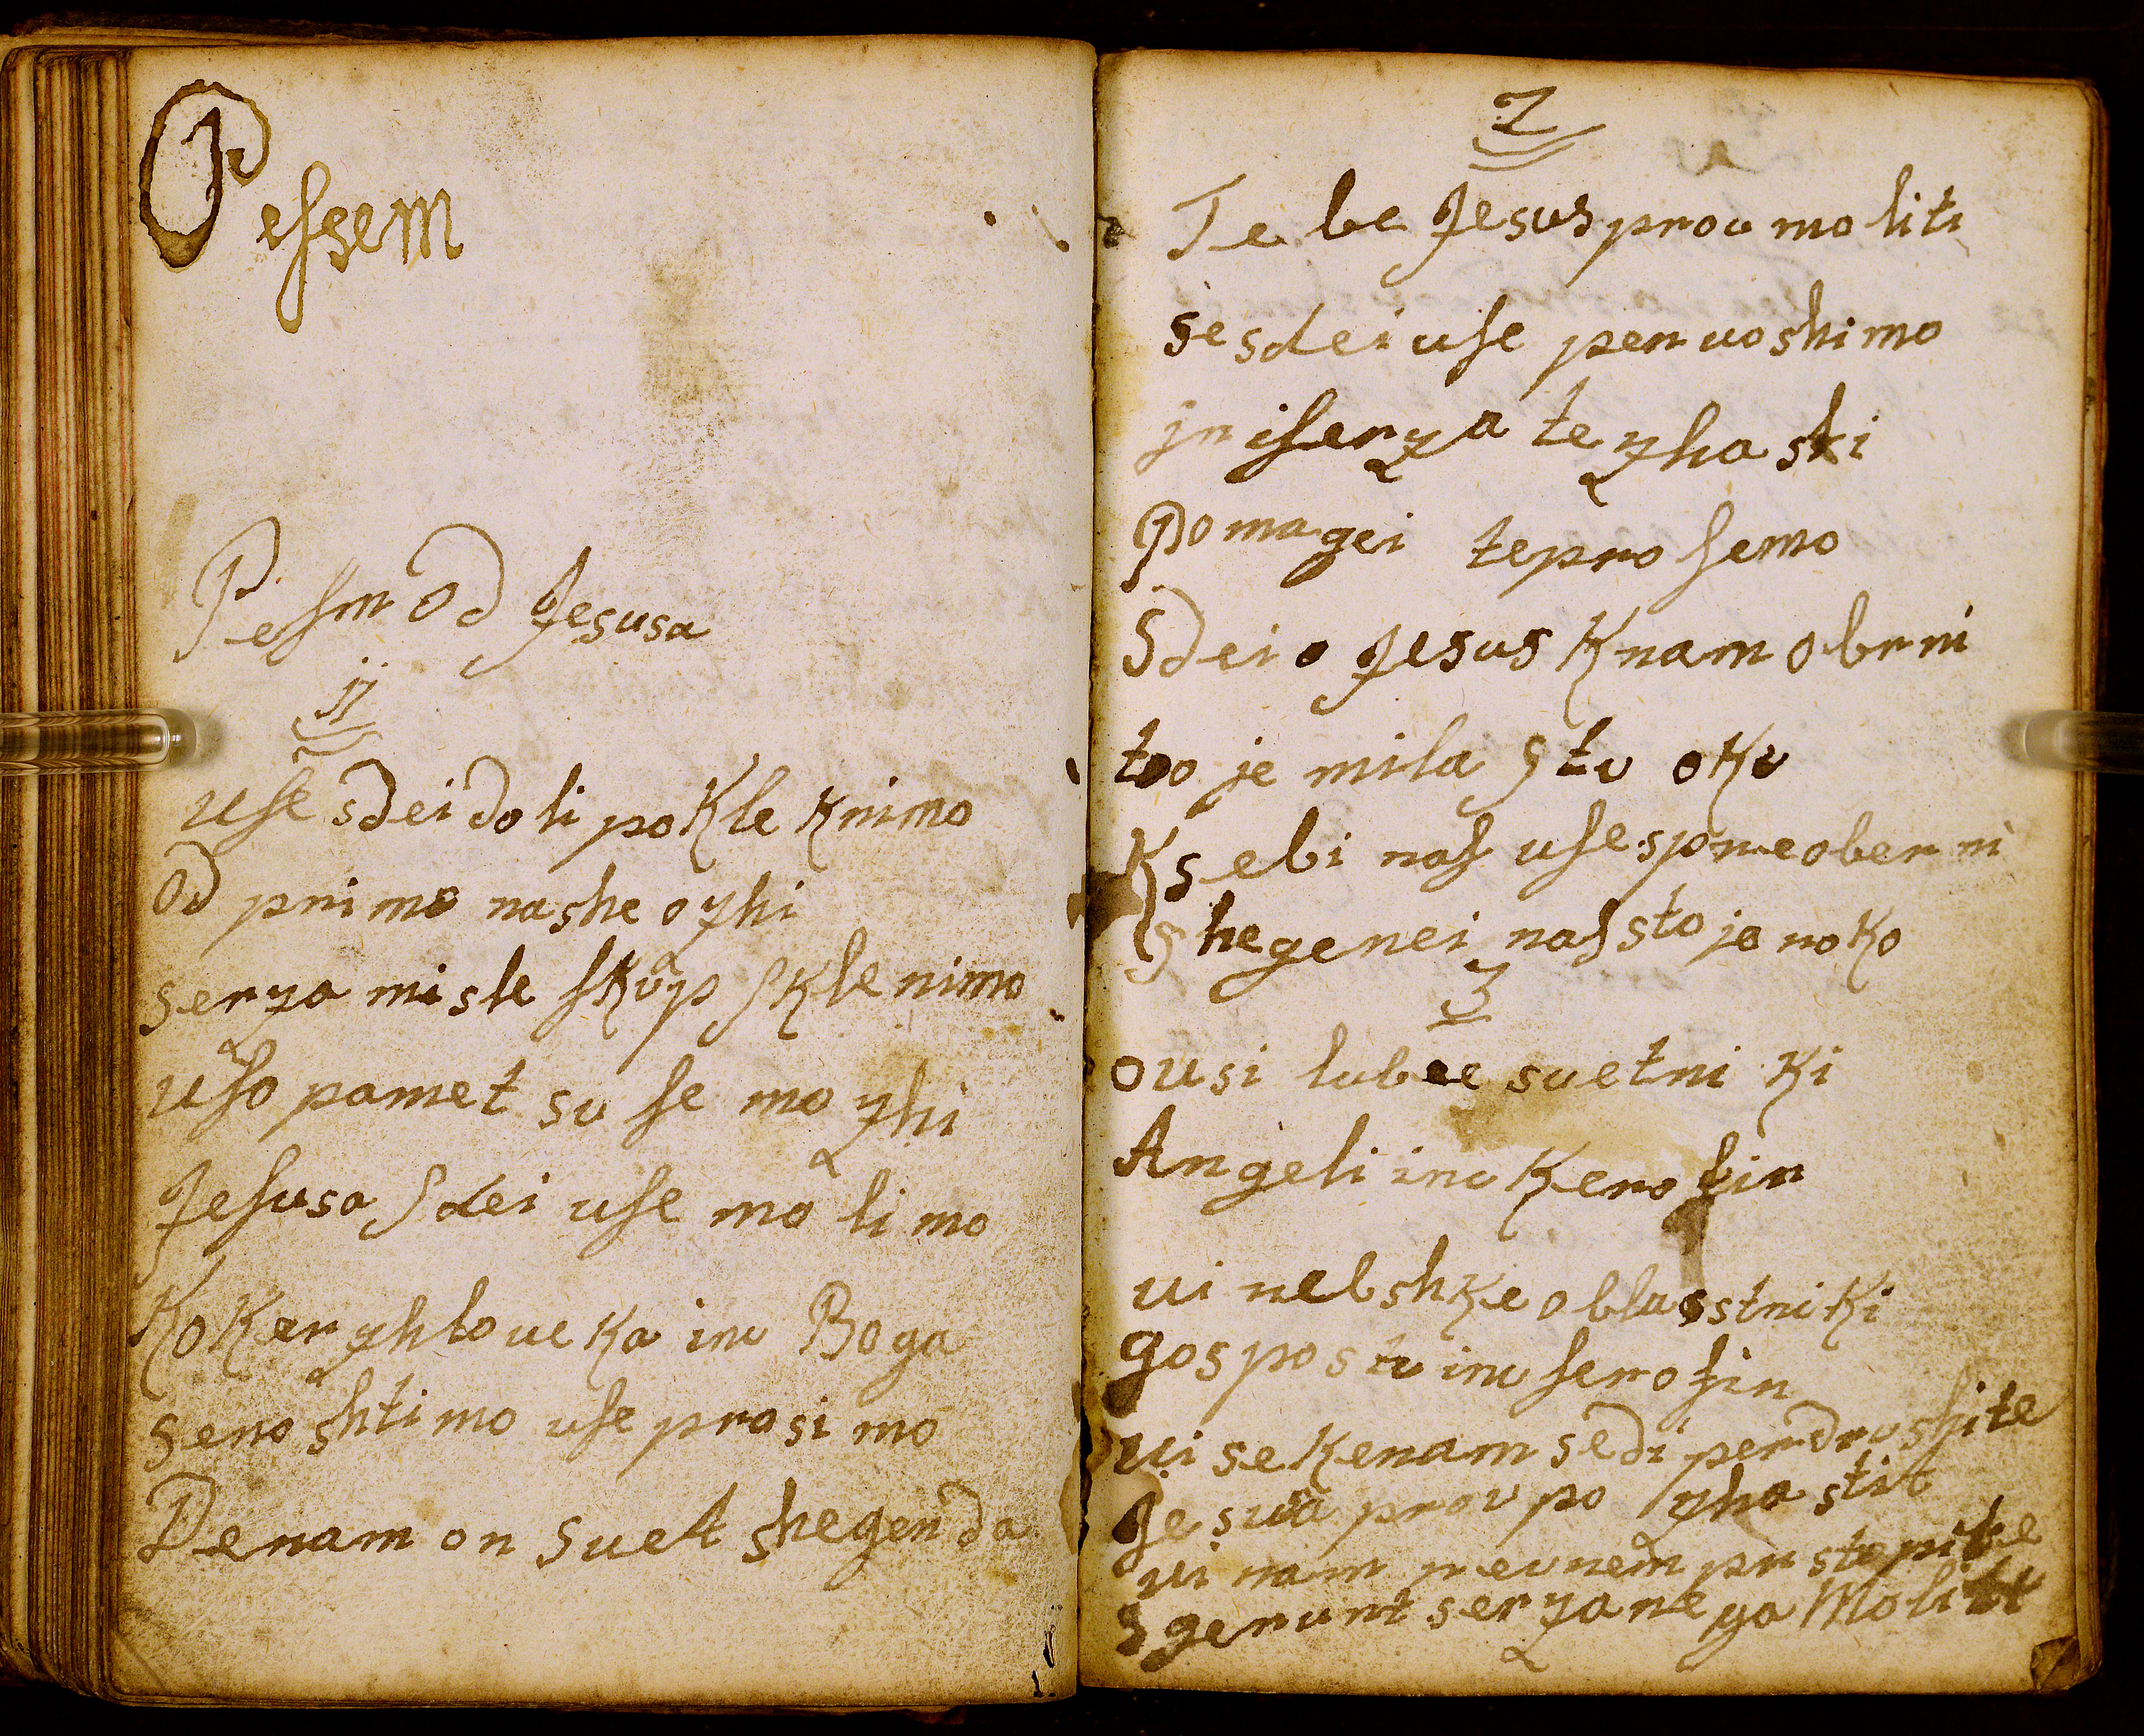 Peſsem
Peſm Od Jesusa
1
uſe sdei doli pokle knimo
Od pnimo nashe ozhi
serza misle ſkup ſklenimo
uſo pamet su ſe mo zhi
Jeſusa ſdei uſe mo li mo
Koker zhloueka inu Boga
seno shti mo uſe prosi mo
De nam on suet shegen da
2
Te be Jesus prou mo liti
se sdei uſe pernoshimo
jn iſerza te zha ski
Pomagei te pro ſemo
Sdei o Jesus K nam obrni
to je mila stu oku
K sebi naſ uſe spreoberni
shegenei naſ sto je roko
3
o usi lube suetni ki
Angeli inu Keroſin
ui nebshke oblastniki
gospostu inu ſeroſin
ui se Kenam sedi perdrushite
Jesusa prou po zhastit
ui nam reunem pristopite
Sgerunt serza ne ga Moliti